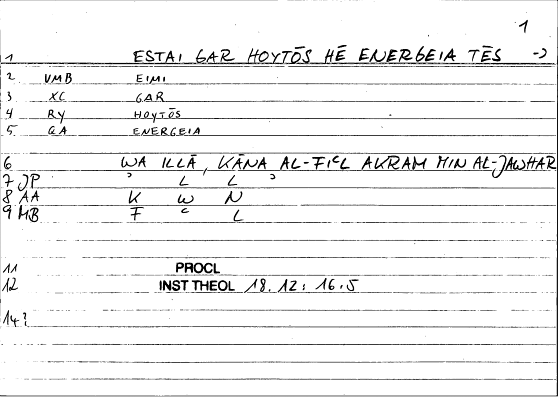 1
1 ESTAI GAR HOYTŌS HĒ ENERGEIA TĒS →
2 VMB EIMI
3 XC GAR
4 RY HOYTŌS
5. GA ENERGEIA
6 WA ILLĀ, KĀNA AL-FIʿL AKRAM MIN AL-JAWHAR
7 JP ʾ L L ʾ
8 AA K W N
9 MB F ʿ L
11 PROCL
12 INST THEOL 18.12: 16.5
14?